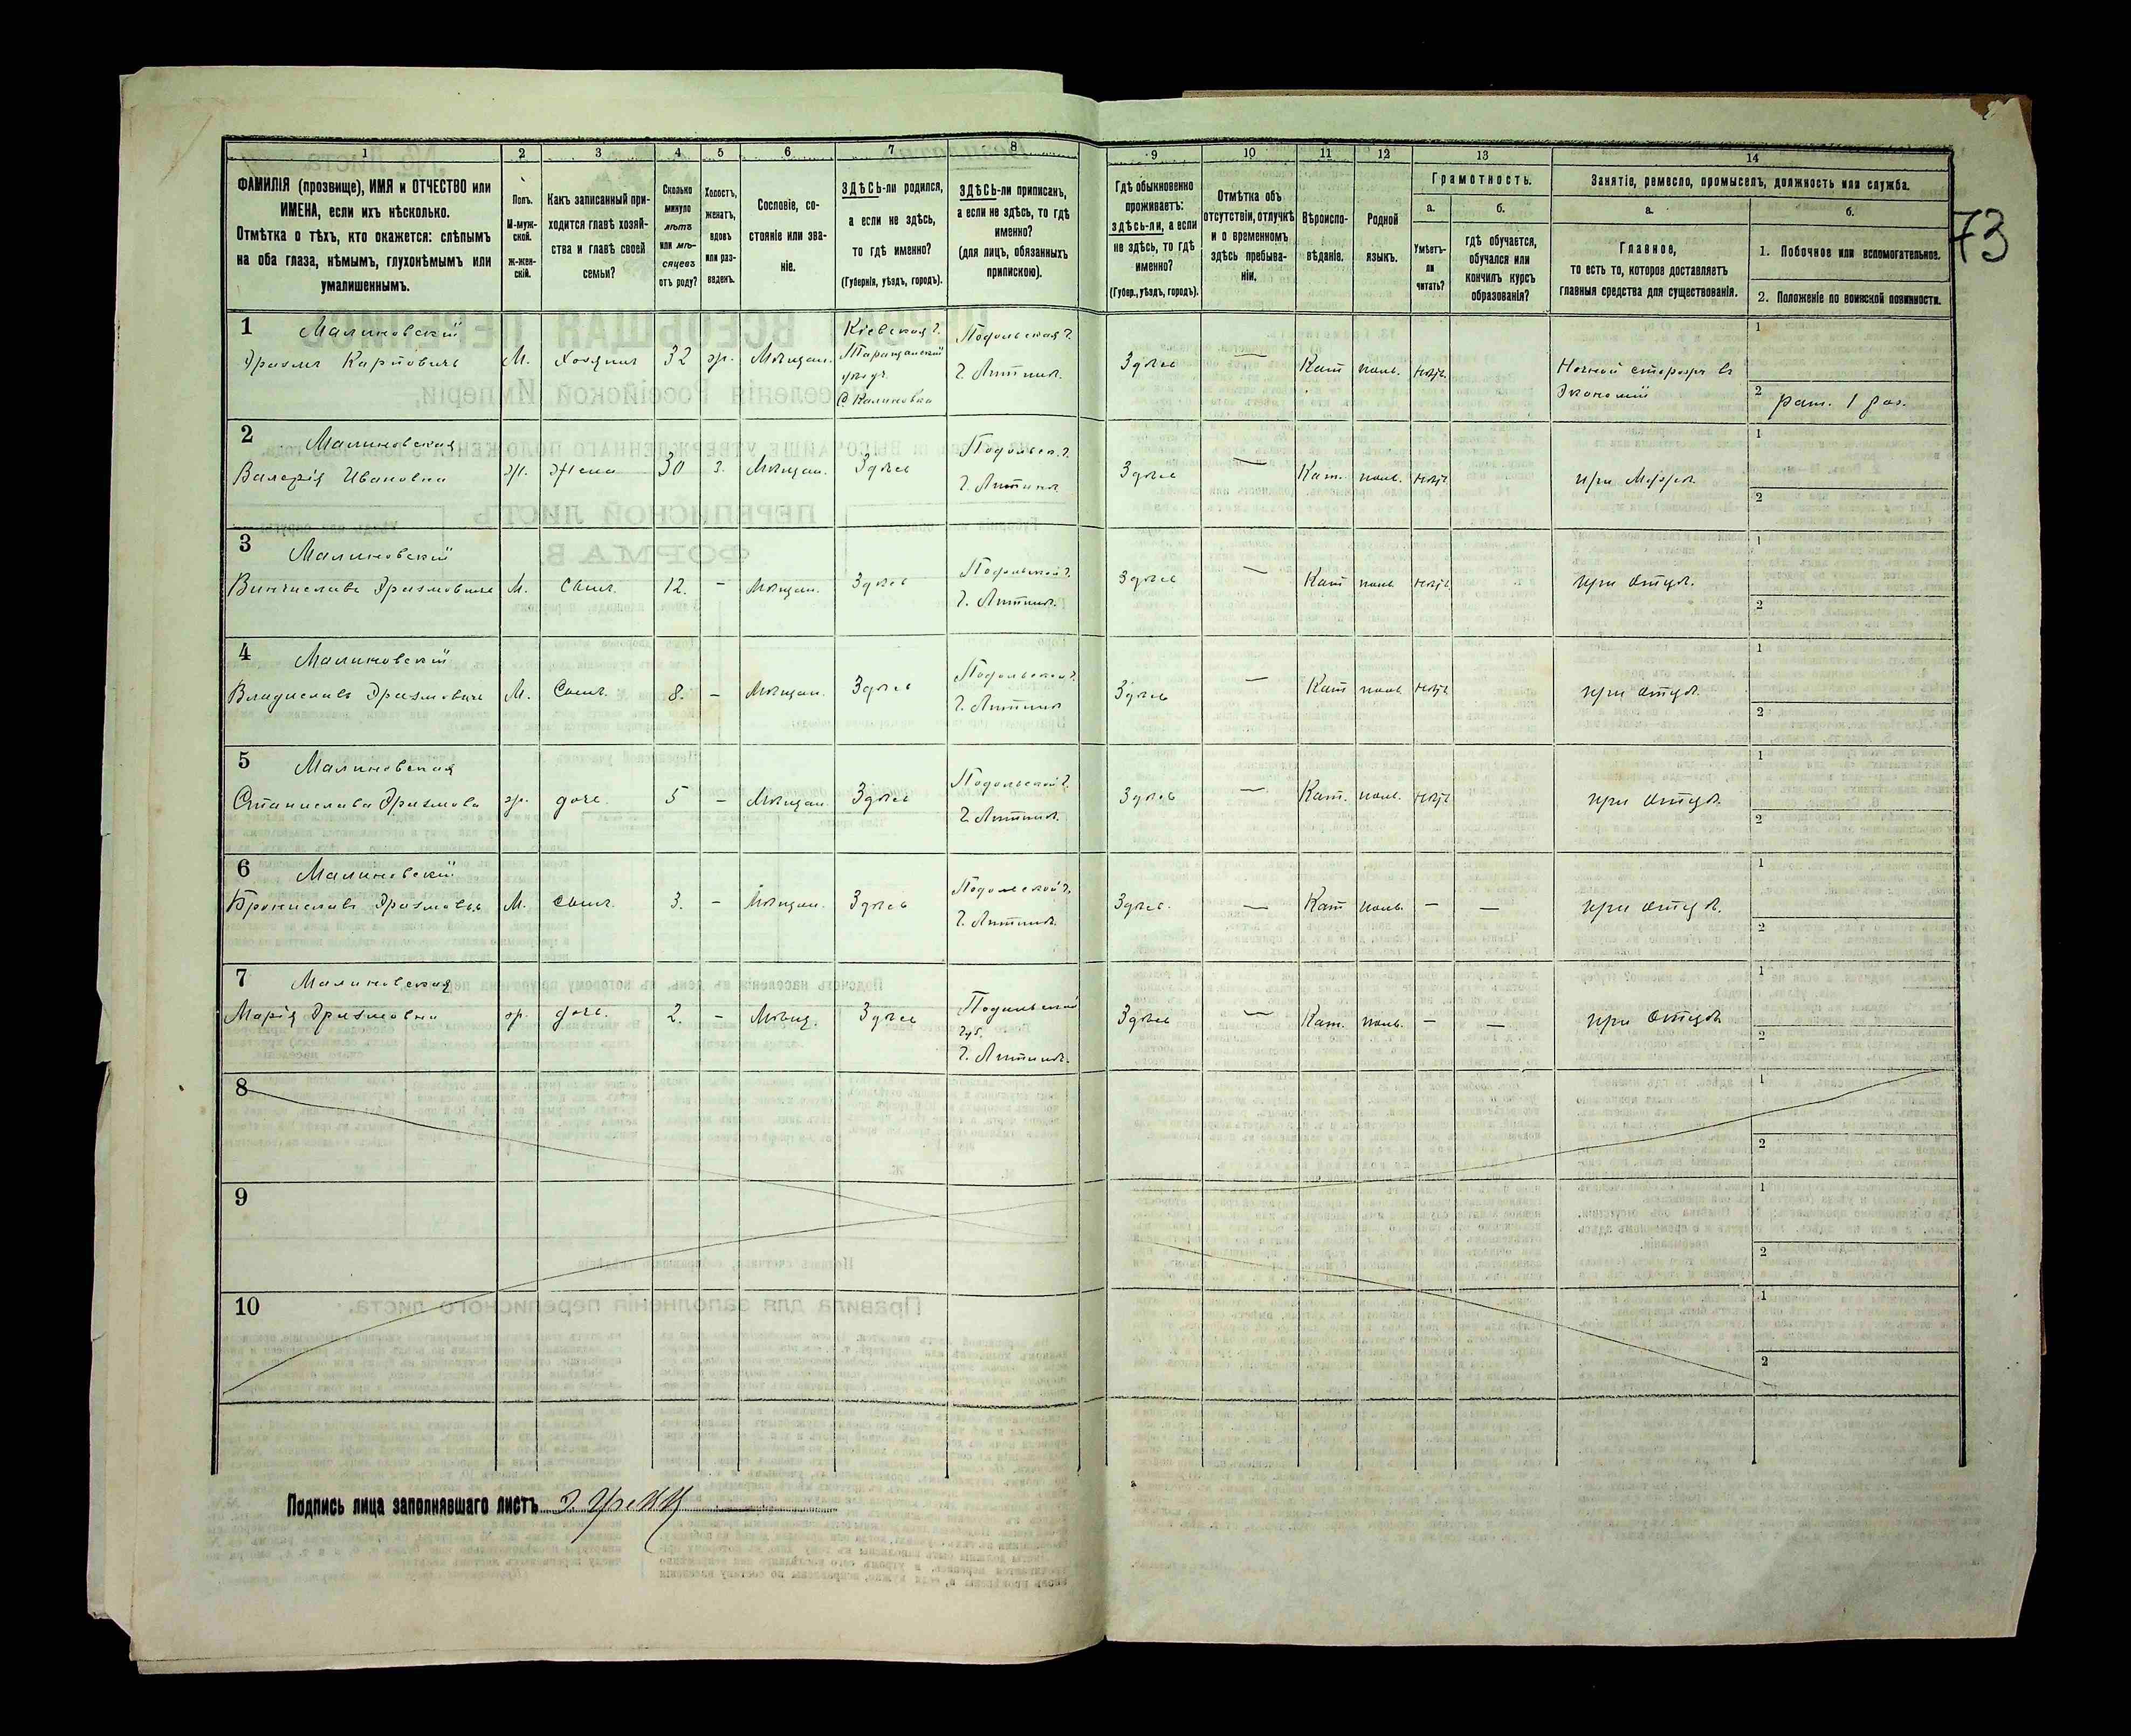 1 2 3 4 5 6 7 8 9 10 11 12 13 14
ФАМИЛІЯ (прозвище), ИМЯ и ОТЧЕСТВО или
ИМЕНА, если ихъ нѣсколько.
Отмѣтка о тѣхъ, кто окажется: слѣпымъ
на оба глаза, нѣмымъ, глухонѣмымъ или
умалишеннымъ.
Полъ.
М-муж-
ской.
Ж-жен-
скій.
Какъ записанный при-
ходится главѣ хозяй-
ства и главѣ своей
семьи?
Сколько
минуло
лѣтъ
или мѣ-
сяцевъ
отъ роду?
Холостъ,
женатъ,
вдовъ
или раз-
веденъ.
Сословіе, со-
стояніе или зва-
ніе.
ЗДѢСЬ-ли родился,
а если не здѣсь,
то гдѣ именно?
(Губернія, уѣздъ, городъ).
ЗДѢСЬ-ли приписанъ,
а если не здѣсь, то гдѣ
именно?
(для лицъ, обязанныхъ
припискою).
Гдѣ обыкновенно
проживаетъ:
здѣсь-ли, а если
не здѣсь, то гдѣ
именно?
(Губер., уѣздъ, городъ).
Отмѣтка объ
отсутствіи, отлучкѣ
и о временномъ
здѣсь пребыва-
ніи.
Вѣроиспо-
вѣданіе.
Родной
языкъ.
Грамотность.
а.
Умѣетъ-
ли
читать?
б.
гдѣ обучается,
обучался или
кончилъ курсъ
образованія?
Занятіе, ремесло, промыселъ, должность или служба.
а.
Главное,
то есть то, которое доставляетъ
главныя средства для существованія.
б.
1. Побочное или вспомогательное.
2. Положеніе по воинской повинности.
73
1 Малиновскій
Эразмъ Карповичъ М. Хозяинъ 32 ж. Мѣщан.
Кіевская г.
Таращанскій
уѣздъ
С. Калиновка
Подольская г.
г. Литинъ.
Здѣсь — Кат поль. нѣтъ
Ночной сторожъ въ
Экономіи
1
2 рат. 1 раз.
2 Малиновская
Валерія Ивановна ж. Жена 30 з. Мѣщан. Здѣсь
Подольск. г.
г. Литинъ
Здѣсь — Кат. поль. нѣтъ при Мужѣ.
1
2
3 Малиновскій
Винчиславъ Эразмовичъ М. Сынъ. 12. - Мѣщан. Здѣсь
Подольской г.
г. Литинъ.
Здѣсь — Кат поль нѣтъ при отцѣ.
1
2
4 Малиновскій
Владиславъ Эразмовичъ М. Сынъ. 8. - Мѣщан. Здѣсь
Подольской г.
г. Литинъ
Здѣсь — Кат поль нѣтъ при отцѣ.
1
2
5 Малиновская
Станислава Эразмова ж. дочь. 5 - Мѣщан. Здѣсь
Подольской г.
г. Литинъ.
Здѣсь — Кат. поль. нѣтъ при отцѣ.
1
2
6 Малиновскій
Брониславъ Эразмовъ М. Сынъ. 3. - Мѣщан. Здѣсь
Подольской г.
г. Литинъ.
Здѣсь. — Кат поль. — — при отцѣ.
1
2
7 Малиновская
Марія Эразмовна ж. дочь. 2. - Мѣщ. Здѣсь
Подольской
губ.
г. Литинъ.
Здѣсь — Кат. поль. — — при Отцѣ
1
2
8
1
2
9
1
2
10
1
2
Подпись лица заполнявшаго листъ